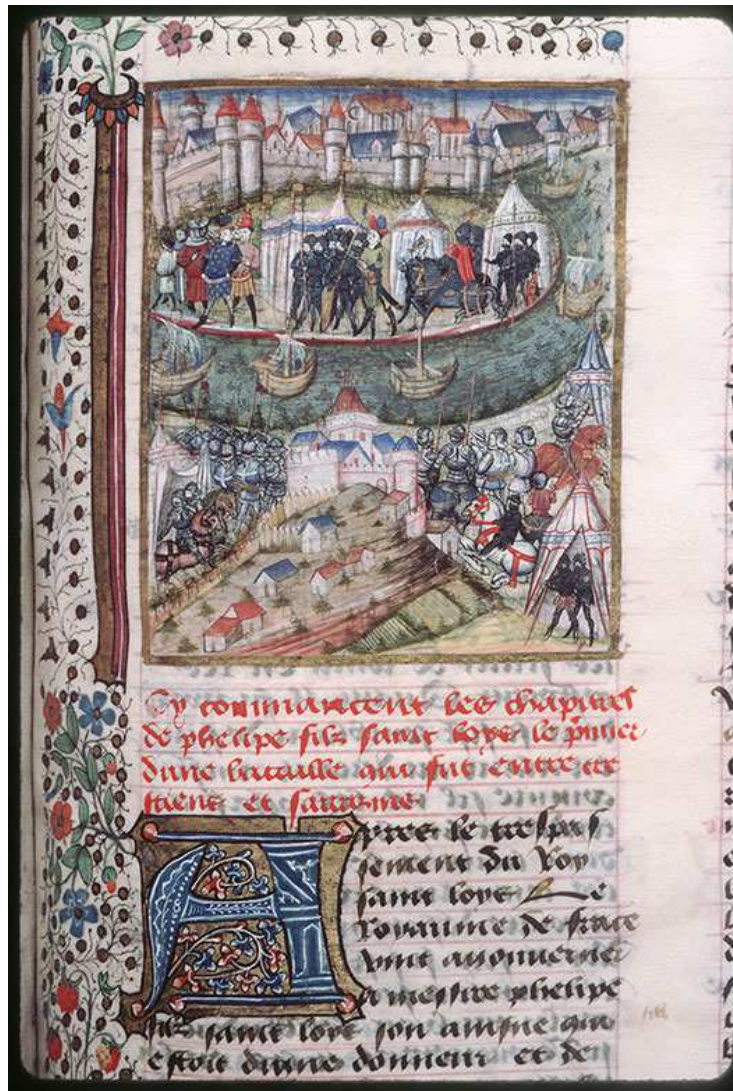 Cy commancent les chapitres
de phelipe filz saint loys le pmier
dune bataille qui fut entre cre
stiens et sarrazins
Apres le trespas
sement du Roy
saint loys Le
Royaume de frace
vint a gouverner
a messire phelipe
filz saint loys son ainsne qui
estoit dugne donneur et de